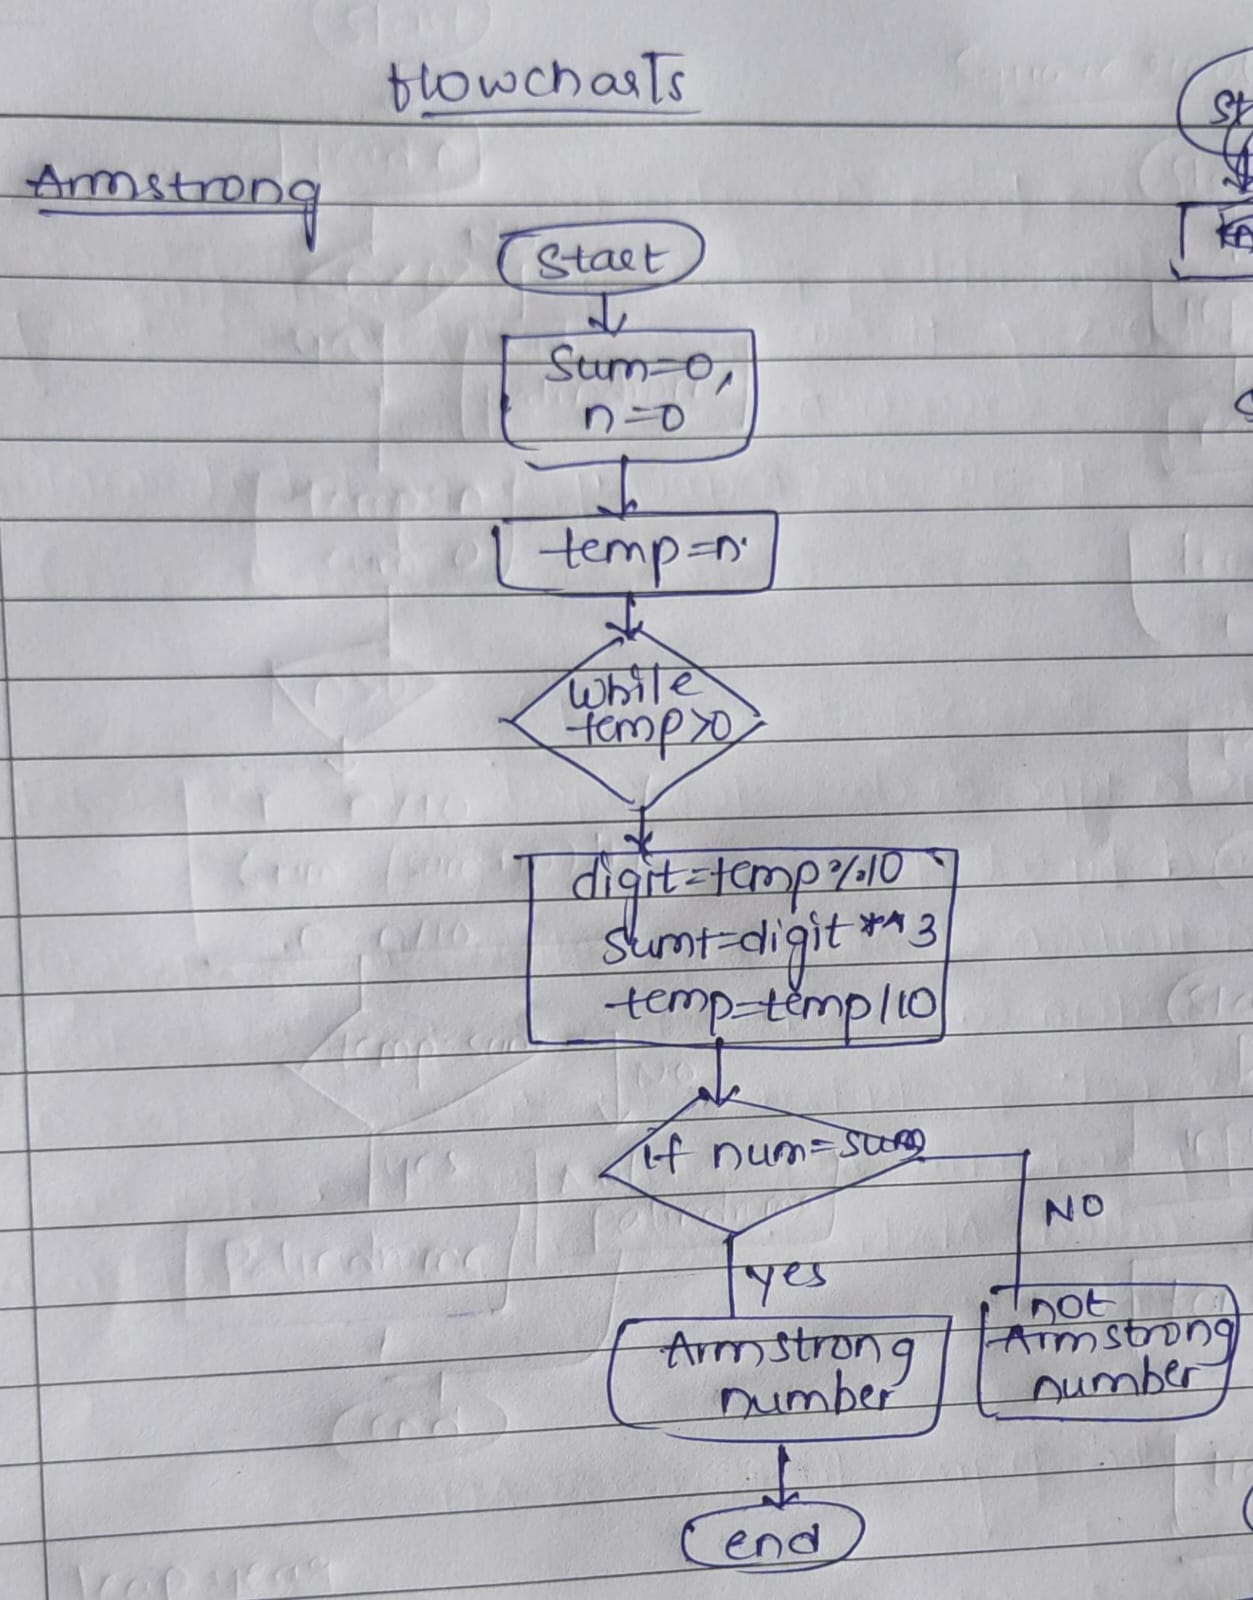 flowcharts
Armstrong
Start
Sum=0,
n=0
temp=n
while
temp>0
digit=temp%10
sum+=digit**3
temp=temp//10
if num=sum
NO
yes
not
Armstrong
number
Armstrong
number
end
St